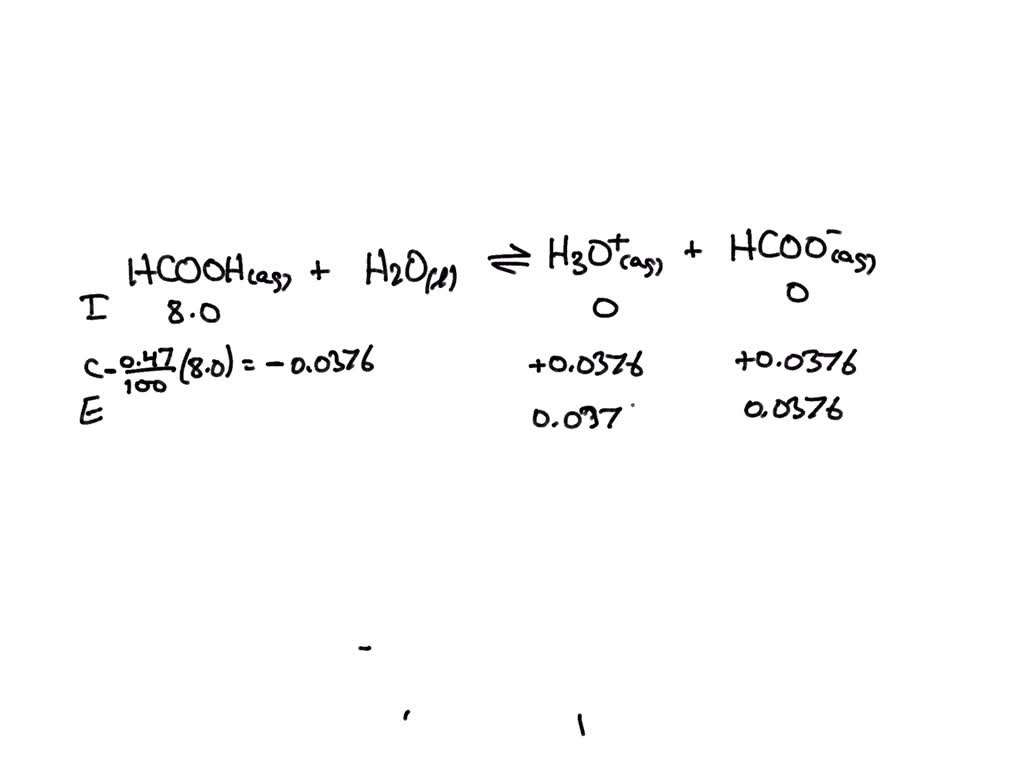 HCOOH(aq) + H2O(l) ⇌ H3O+(aq) + HCOO-(aq)
I 8.0 0 0
C -0.47/100 (8.0) = -0.0376 +0.0376 +0.0376
E 0.037 0.0376